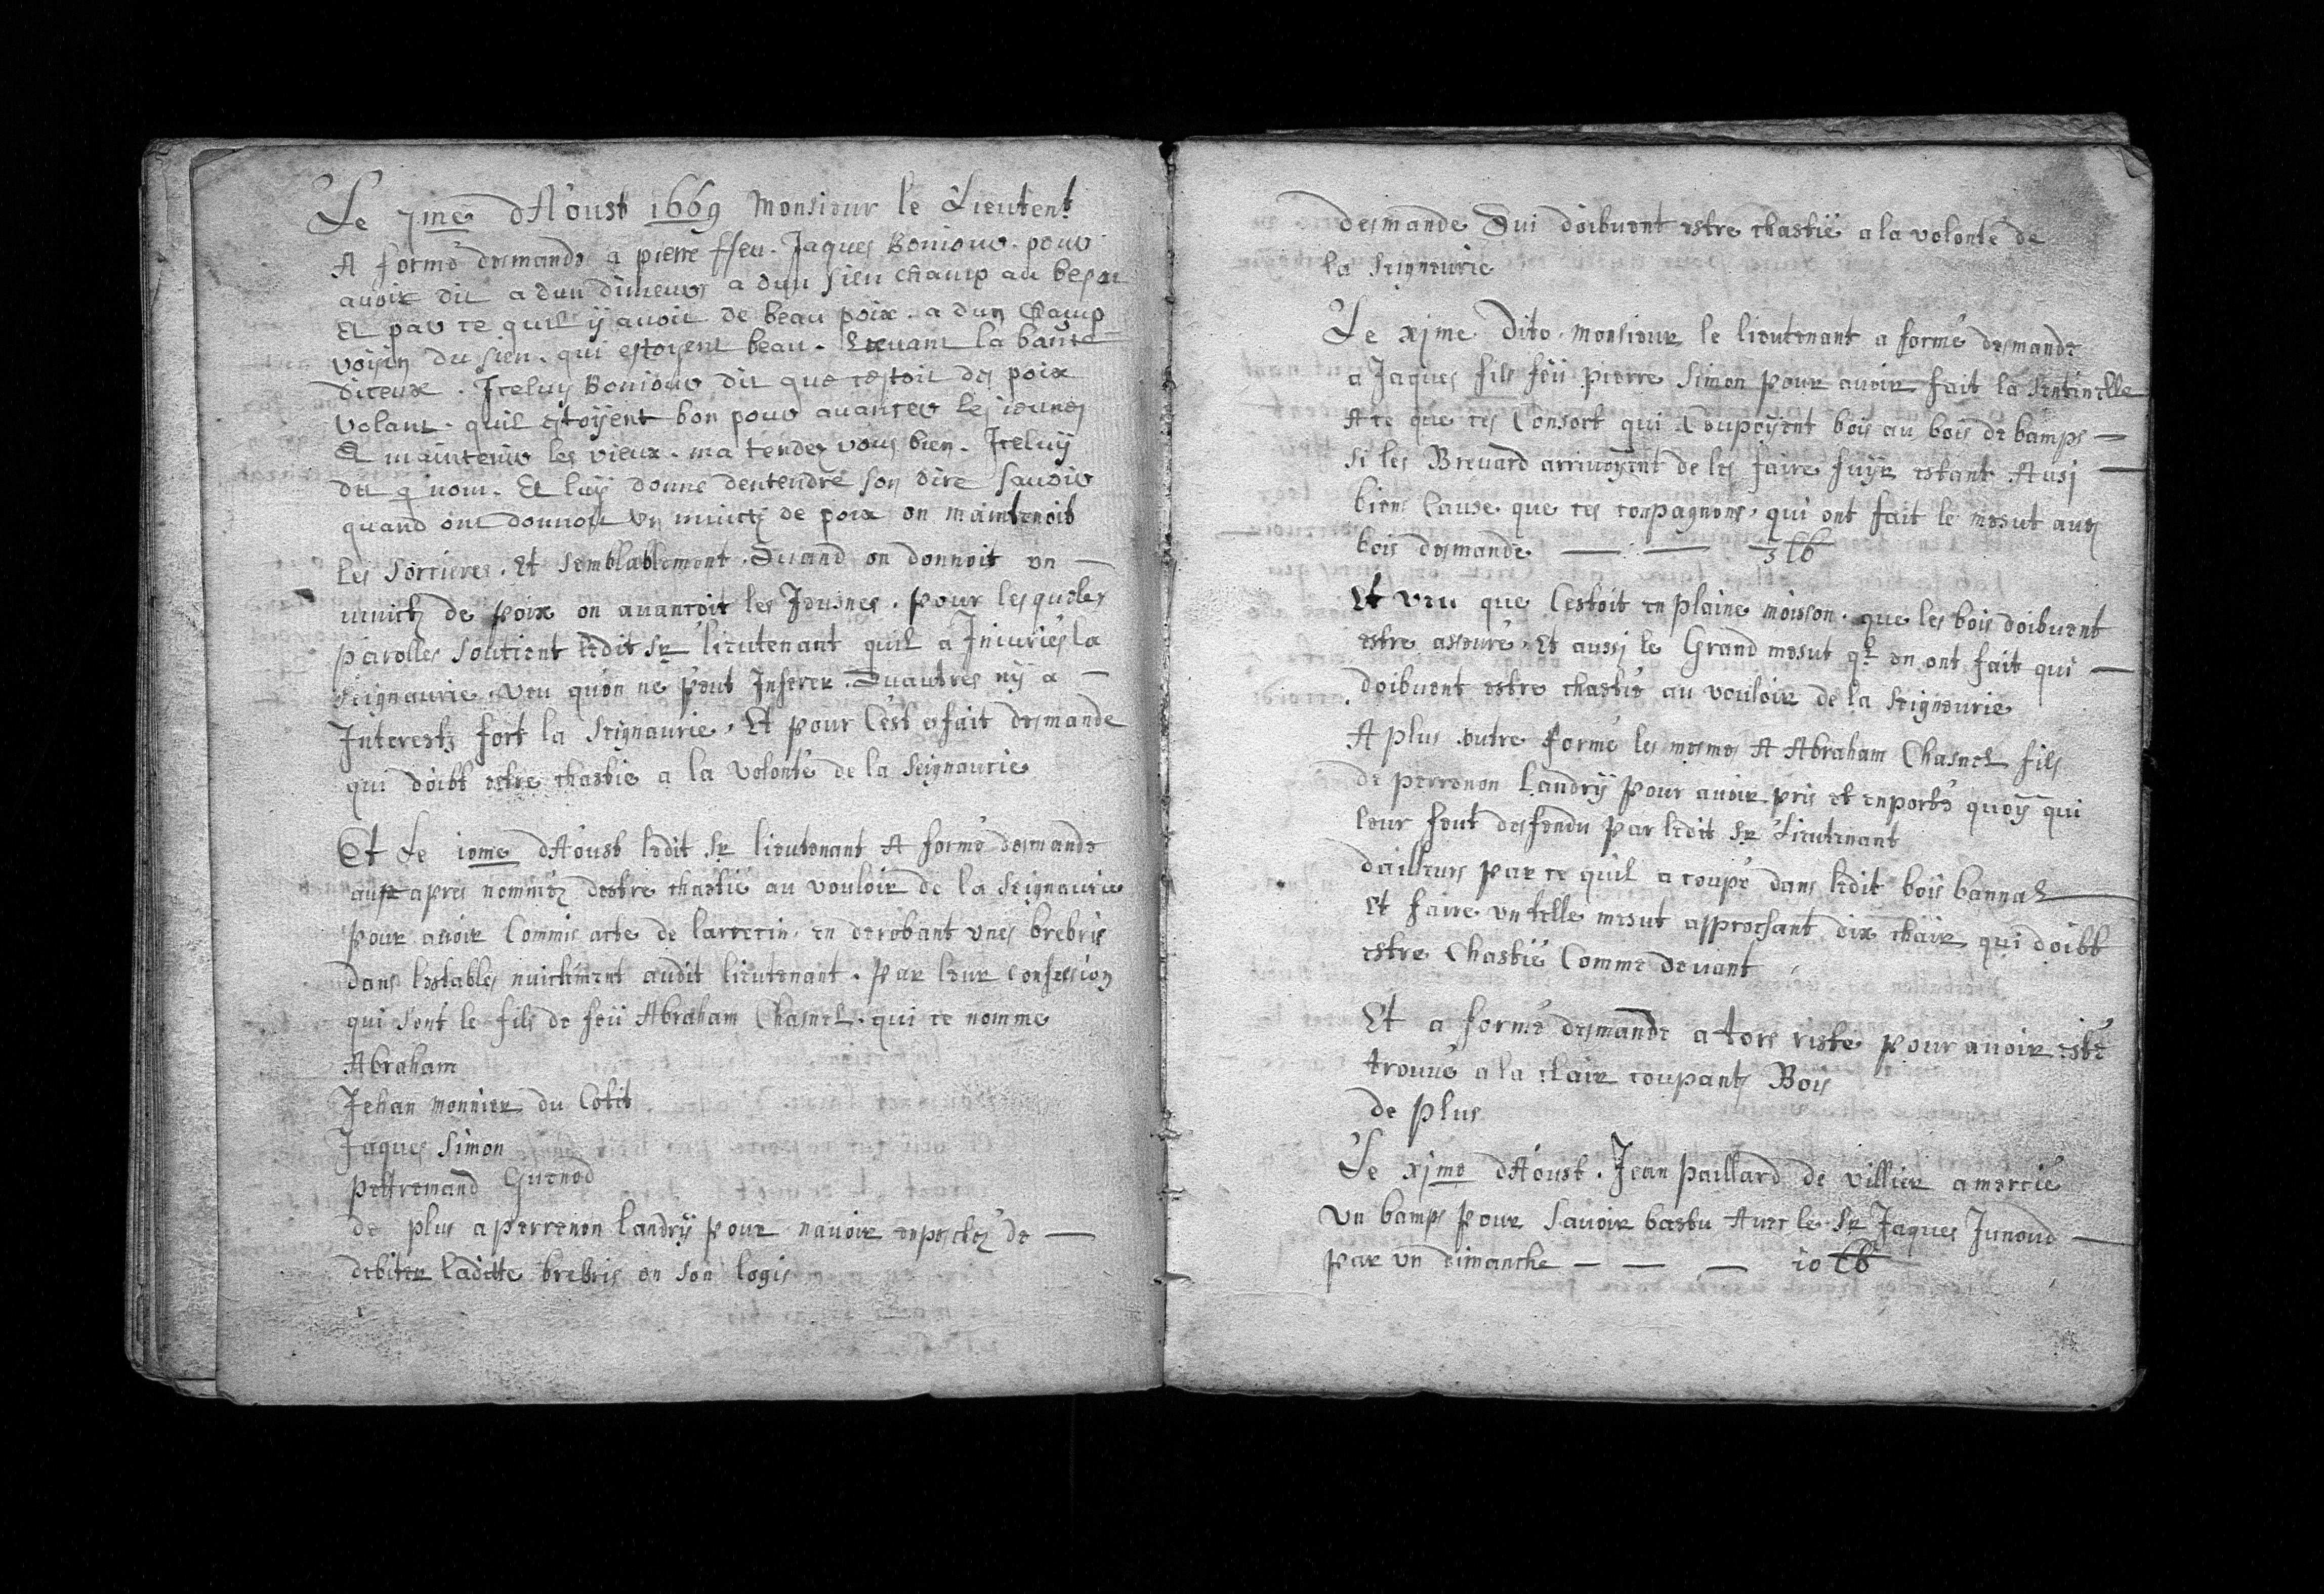 Le 7me d'Aoust 1669 Monsieur le Lieutent
A formé desmande a pierre ffeu Jaques Boniour pour
auoir dit a dun dimeurs a dun sien champ au
Et par ce quil ÿ auoit de beau poix a dun Champ
voysin du sien qui estoyent beau
diceux. Iceluy Boniour dit que cestoit des poix
volant quil estoÿent bon pour auancer les ieunes
Et maintenir les vieux ma tendez vous bien. Iceluÿ
dit q nom. Et luÿ donne dentendre son dire sauoir
quand ont donnoit un muictz de poix on maintenoit
les sorcieres. Et semblablement. Quand on donnoit un —
muictz de poix on auancoit les Jeusnes. pour lesqueles
parolles soutient ledit Sr lieutenant quil a Iniuriés la
seignaurie. veu qu'on ne peut Inferer. Quautres nÿ a —
Interestz fort la Seignaurie. Et pour c'est esfait desmande
qui doibt estre chastie a la volonté de la Seignaurie
Et Le 10me d'Aoust ledit Sr lieutenant A formé desmande
aux apres nommez destre chastié au vouloir de la Seignaurie
pour auoir Commis acte de larrecin en derobant vnes brebris
dans lestables nuictement audit lieutenant. par leur confession
qui sont le fils de feü Abraham Chasnel qui ce nomme
Abraham
Jehan monnier du Cotit
Jaques Simon
pettremand Guenod
de plus a perrenon landrÿ pour nauoir enpeschez de —
debiter laditte brebris en son logis
desmande Qui doibuent estre chastié a la volonté de
la seigneurie
Le xjme Dito. Monsieur le lieutenant a formé desmande
a Jaques fils feü pierre Simon pour auoir fait la sentinelle
A ce que ces Consort qui Coupoÿent bois au bois de bamps —
si les Breuard arriuoÿent de les faire fuÿr estant Ausj —
biens Cause que ces conpagnons qui ont fait le mesut aus
bois desmande — — 3 lb
Et veu que Cestoit en plaine moisson. que les bois doibuent
estre asseuré. Et aussj le Grand mesut ql en ont fait qui —
doibuent estre chastié au vouloir de la seigneurie
A plus outre formé les mesmes A Abraham Chasnel fils
de perrenon Landrÿ pour auoir pris et enporté quoÿ qui
leur feut desfendu par ledit Sr Lieutenant
dailleurs par ce qu'il a coupé dans ledit bois bannal —
Et faire vn telle mesut approchant dix chair qui doibt
estre Chastié Comme deuant
Et a formé desmande a tors riste pour auoir esté
trouué a la chair coupantz Bois
de plus
Le xjme d'Aoust. Jean paillard de villier amercié
Vn bamps pour s'auoir bastu Auec le Sr Jaques Junoud —
par vn dimanche — — — 10 lb